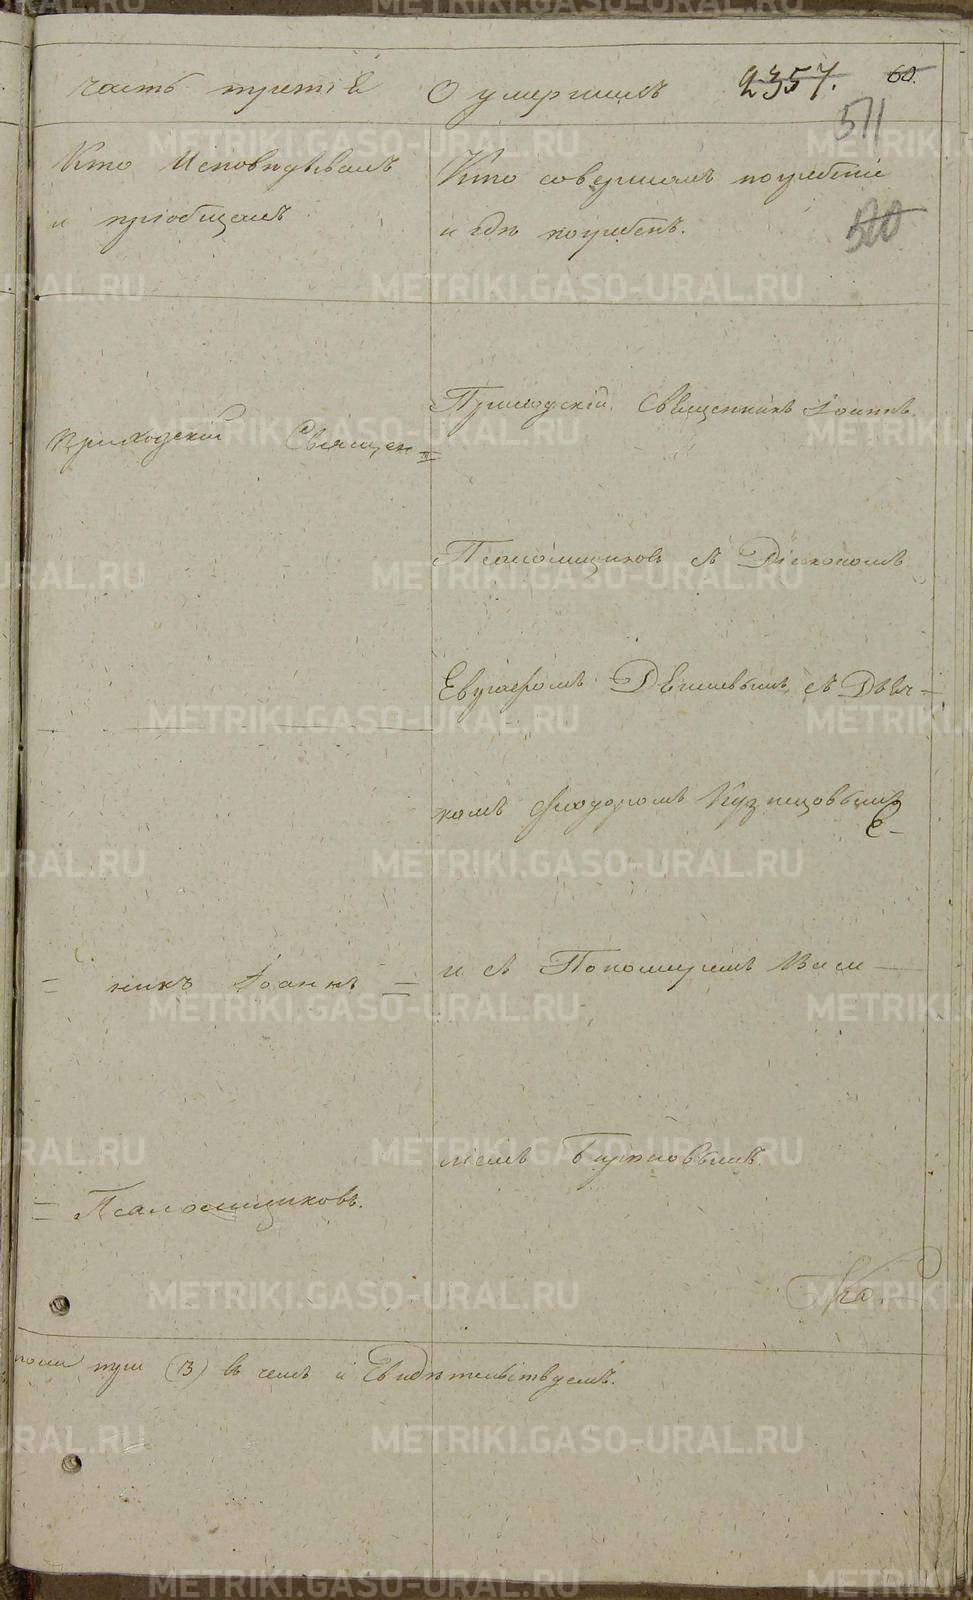 Часть третья О умершихъ 2357. 60.
511
Кто Исповѣдывалъ
и пріобщалъ
Кто совершалъ погребеніе
и гдѣ погребенъ.
500
Приходскій Священ=
=никъ Іоаннъ=
=Псаломщиковъ.
Приходскій Священникъ Іоаннъ
Псаломщиковъ съ Діакономъ
Евграфомъ съ Дьяч-
комъ Феодоромъ Кузнецовымъ
и съ Пономаремъ Васи-
ліемъ
(13) въ чемъ и Свидѣтельствуемъ.
METRIKI.GASO-URAL.RU